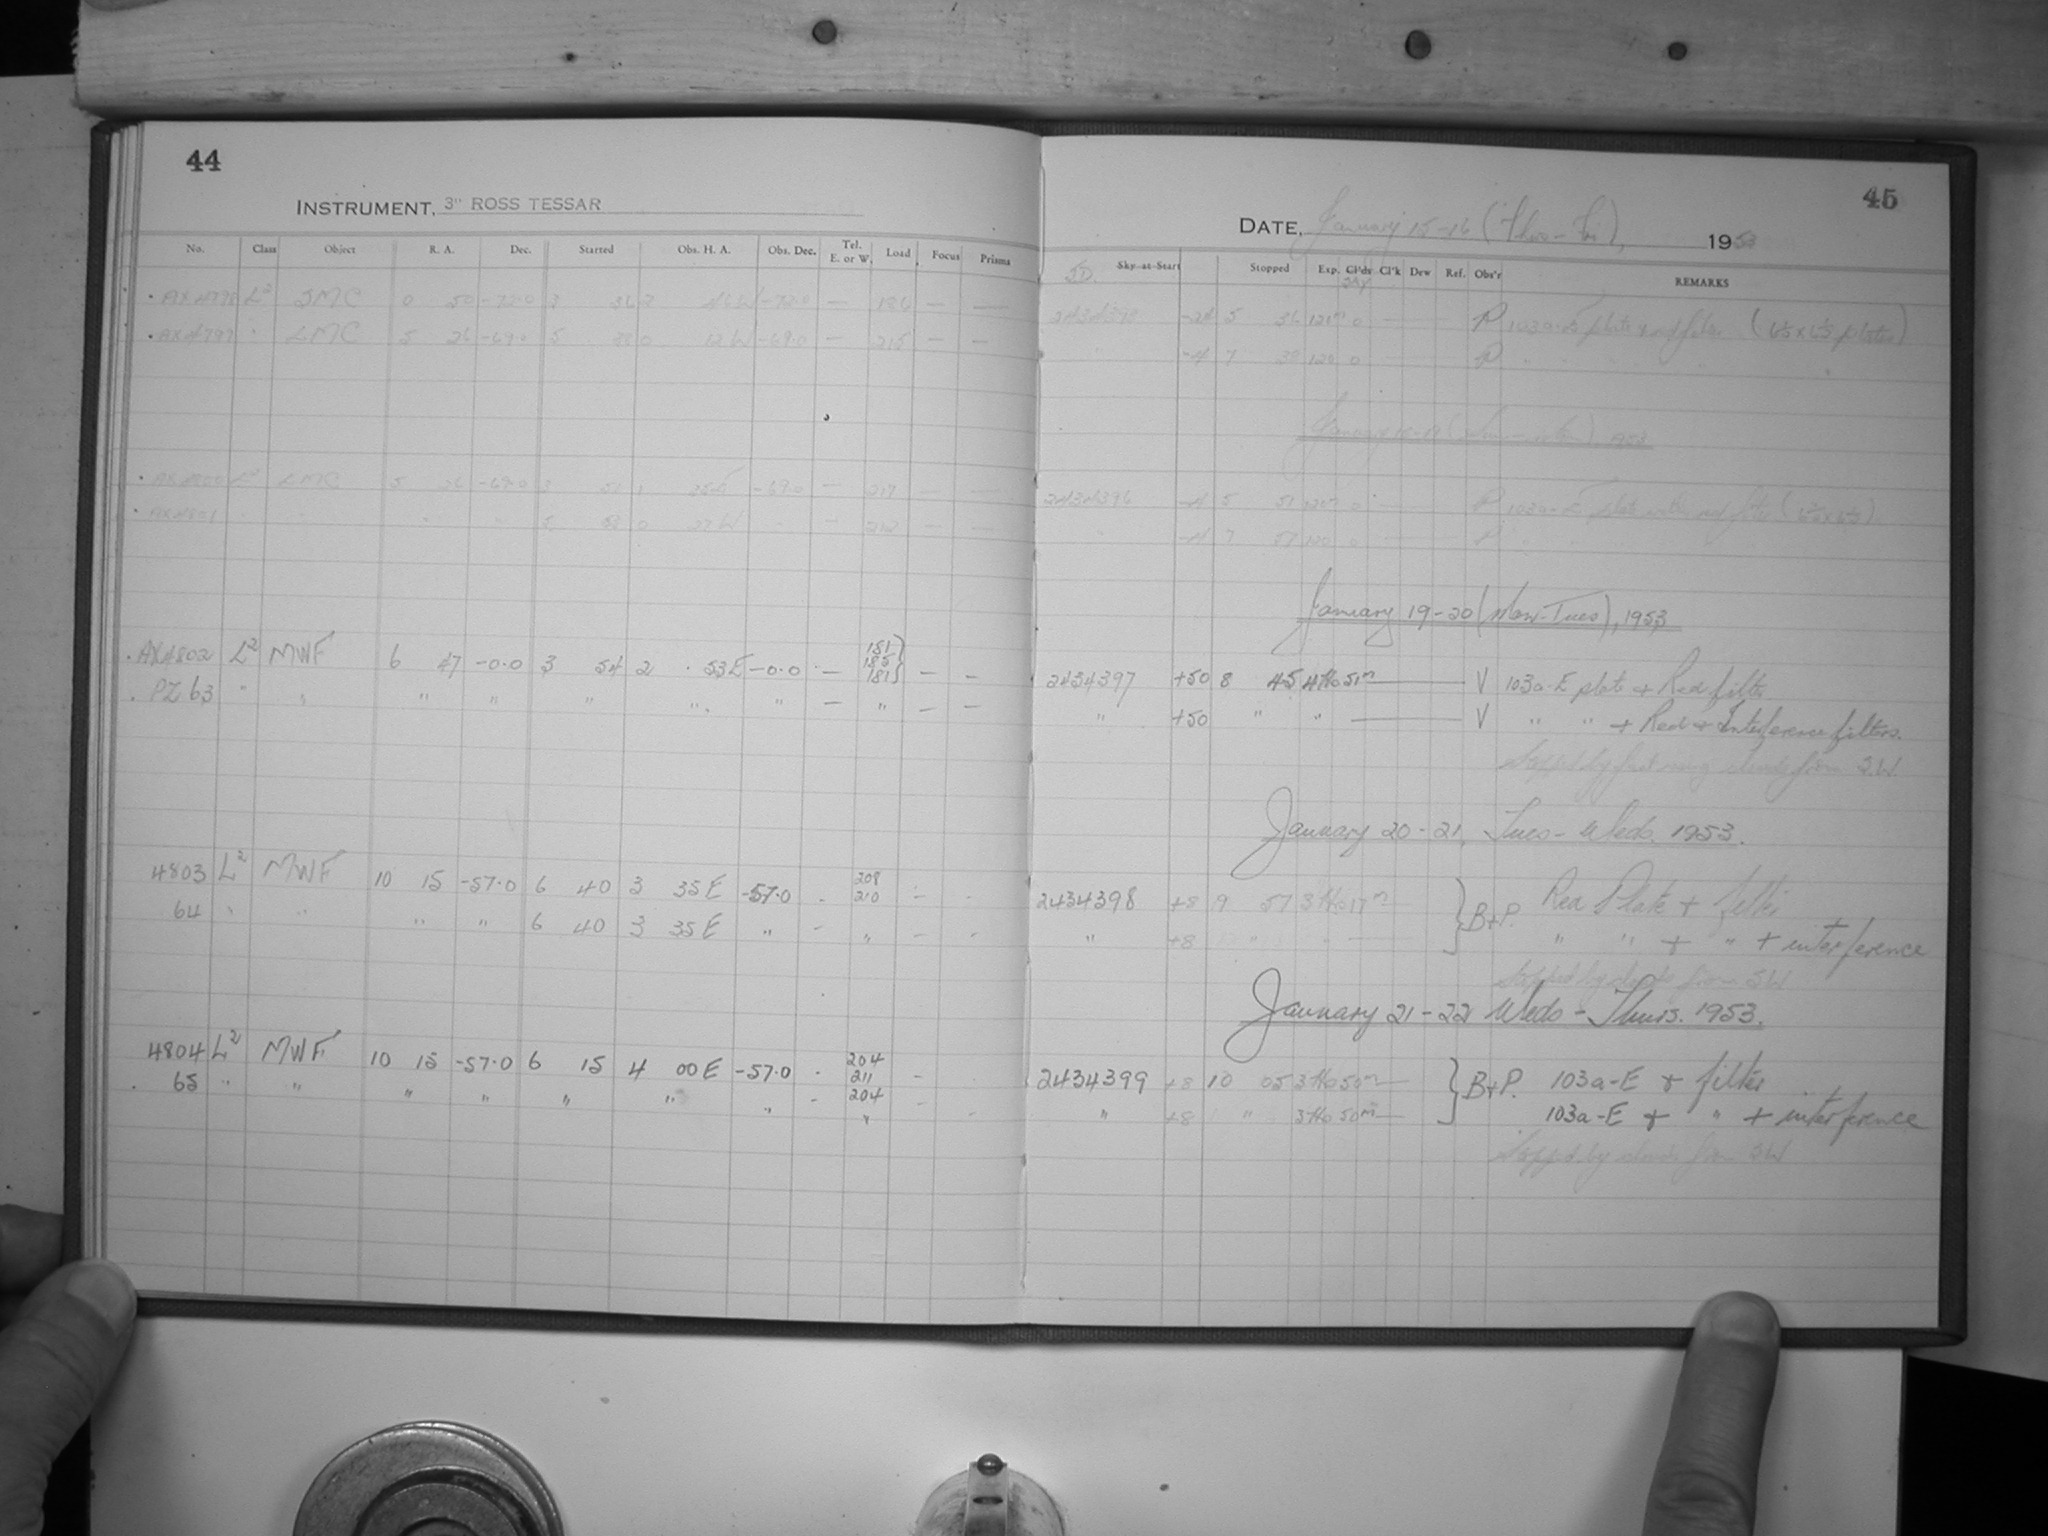 44
INSTRUMENT, 3" ROSS TESSAR
No. Class Object R. A. Dec. Started Obs. H. A. Obs. Dec. Tel. E. or W. Load Focus Prisms
L² SMC 0 50 -73.0 3 36 2 46W -73.0 — 186 — —
AX4799 " LMC 5 26 -69.0 5 38 0 12W -69.0 — 215 — —
LMC 5 26 -69.0 3 51 1 35E -69.0 — 217 — —
AX4801 0 27W — 212 — —
AX4802 L² MWF 6 47 -0.0 3 54 2 53E -0.0 — 181 185 181 — —
PZ 63 " " " " " " " — " — —
4803 L² MWF 10 15 -57.0 6 40 3 35E -57.0 - 208 210 - -
64 " " " " 6 40 3 35E " - " - -
4804 L² MWF 10 15 -57.0 6 15 4 00E -57.0 - 204 211 204 - -
65 " " " " " " " - " - -
45
DATE, January 15-16 (Thurs-Fri), 1953
J.D. Sky-at-Start Stopped Exp. Cl'ds Cl'k Dew Ref. Obs'r REMARKS
5 36 120m 0 P 103a-E plate + red filter
-4 7 38 120 0 P
2434396 -4 5 51 120m 0 P 103a-E plate with red filter
-4 7 57 120 0 P
January 19-20 (Mon-Tues), 1953
2434397 +50 8 45 4Ho 51m V 103a-E plate + Red filter
" +50 " " V " " + Red + Interference filters.
Stopped by clouds from SW
January 20-21, Tues-Weds. 1953.
2434398 +8 9 57 3Ho17m B+P. Red Plate + filter
" +8 " " " " + " + interference
Stopped by clouds from SW
January 21-22 Weds-Thurs. 1953.
2434399 +8 10 05 3Ho50m B+P. 103a-E + filter
" +8 " 3Ho50m 103a-E + " + interference
Stopped by clouds from SW